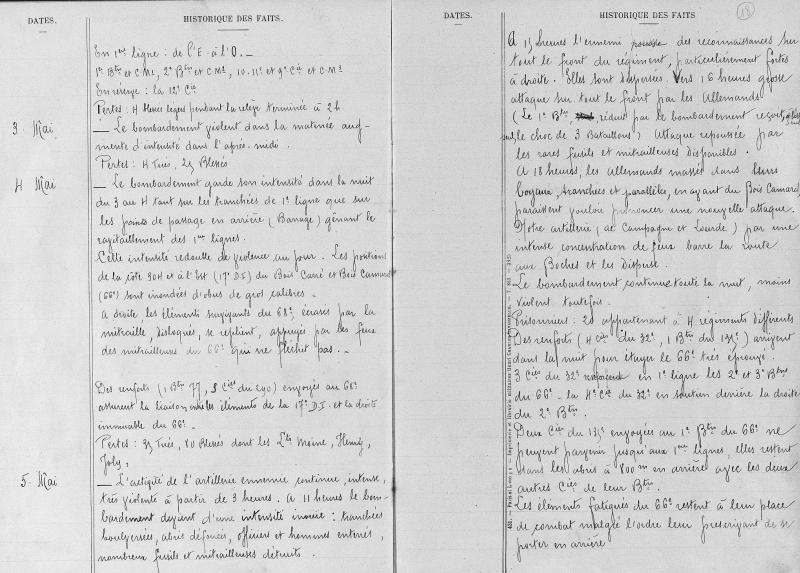 DATES.
HISTORIQUE DES FAITS.
En 1ère ligne : de l'E. à l'O. —
1er Bton et CM1, 2e Bton et CM2, 10. 11e et 9e Cie et CM3
En réserve : la 12e Cie
Pertes : 4 blessés légers pendant la relève terminée à 2h
3 Mai
— Le bombardement violent dans la matinée aug-
mente d'intensité dans l'après-midi.
Pertes : 4 Tués, 25 Blessés
4 Mai
— Le bombardement garde son intensité dans la nuit
du 3 au 4 tant sur les tranchées de 1e ligne que sur
les points de passage en arrière (Barrage) gênant le
ravitaillement des 1ères lignes.
Cette intensité redouble de violence au jour. Les positions
de la côte 304 et à l'Est (17e D.I) du Bois Carré et Bois Camard
(66e) sont inondées d'obus de gros calibres.
A droite les éléments survivants du 68e, écrasés par la
mitraille, disloqués, se replient, appuyés par les feux
des mitrailleuses du 66e qui ne fléchit pas. —
Des renforts (1 Bton 77, Cies du 290) envoyés au 68e
assurent la liaison les éléments de la 17e D.I. et la droite
immuable du 66e.
Pertes : 35 Tués, 80 Blessés dont les Lts Moine, Fleury,
Joly.
5. Mai
— L'activité de l'artillerie ennemie continue, intense,
très violente à partir de 3 heures. A 11 heures le bom-
bardement devient d'une intensité inouïe : tranchées
bouleversées, abris défoncés, officiers et hommes enterrés,
nombreux fusils et mitrailleuses détruits.
DATES.
HISTORIQUE DES FAITS
18
A 15 heures l'ennemi pousse des reconnaissances sur
tout le front du régiment, particulièrement fortes
à droite. Elles sont dispersées. Vers 16 heures grosse
attaque sur tout le front par les Allemands
(Le 1er Bton, réduit par le bombardement reçoit,
le choc de 3 Bataillons) Attaque repoussée par
les rares fusils et mitrailleuses disponibles.
A 18 heures, les Allemands massés dans leurs
boyaux, tranchées et parallèles, en avant du Bois Camard,
paraissent vouloir prononcer une nouvelle attaque.
Notre artillerie (de Campagne et Lourde) par une
intense concentration de feux barre la route
aux Boches et les disperse.
Le bombardement continue toute la nuit, moins
violent toutefois.
Prisonniers : 20 appartenant à 4 régiments différents
Des renforts (4 Cies du 32e, 1 Bton du 135e) arrivent
dans la nuit pour étayer le 66e très éprouvé.
3 Cies du 32e renforcent en 1e ligne les 2e et 3e Btons
du 66e - la 4e Cie du 32 en soutien derrière la droite
du 2e Bton.
Deux Cies du 135e envoyées au 1er Bton du 66e ne
peuvent parvenir jusqu'aux 1ères lignes, elles restent
dans les abris à 800m en arrière avec les deux
autres Cies de leur Bton.
Les éléments fatigués du 66e restent à leur place
de combat malgré l'ordre leur prescrivant de se
porter en arrière